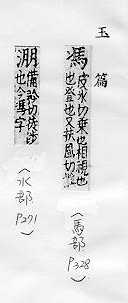 玉篇
馮皮氷切乘也相視
也登也又扶風切姓
（馬部P328）
淜備矜切徒涉
也今馮字
（水部P271）